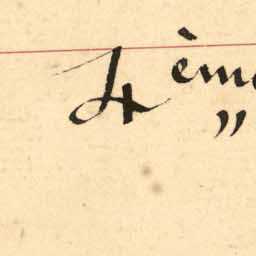 4ème
"